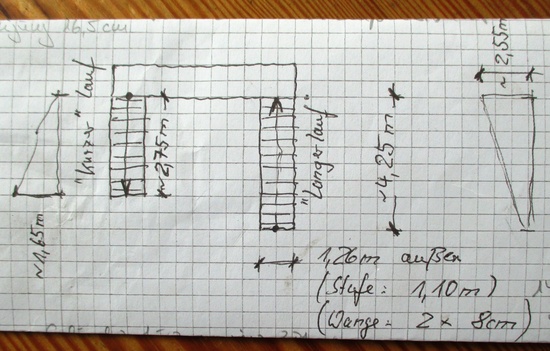 16,5cm
~ 2,55m
"Kurzer" Lauf
~2,75m
"Langer Lauf"
~4,25m
~1,65m
1,26m außen
(Stufe: 1,10m)
(Wange: 2 x 8cm)